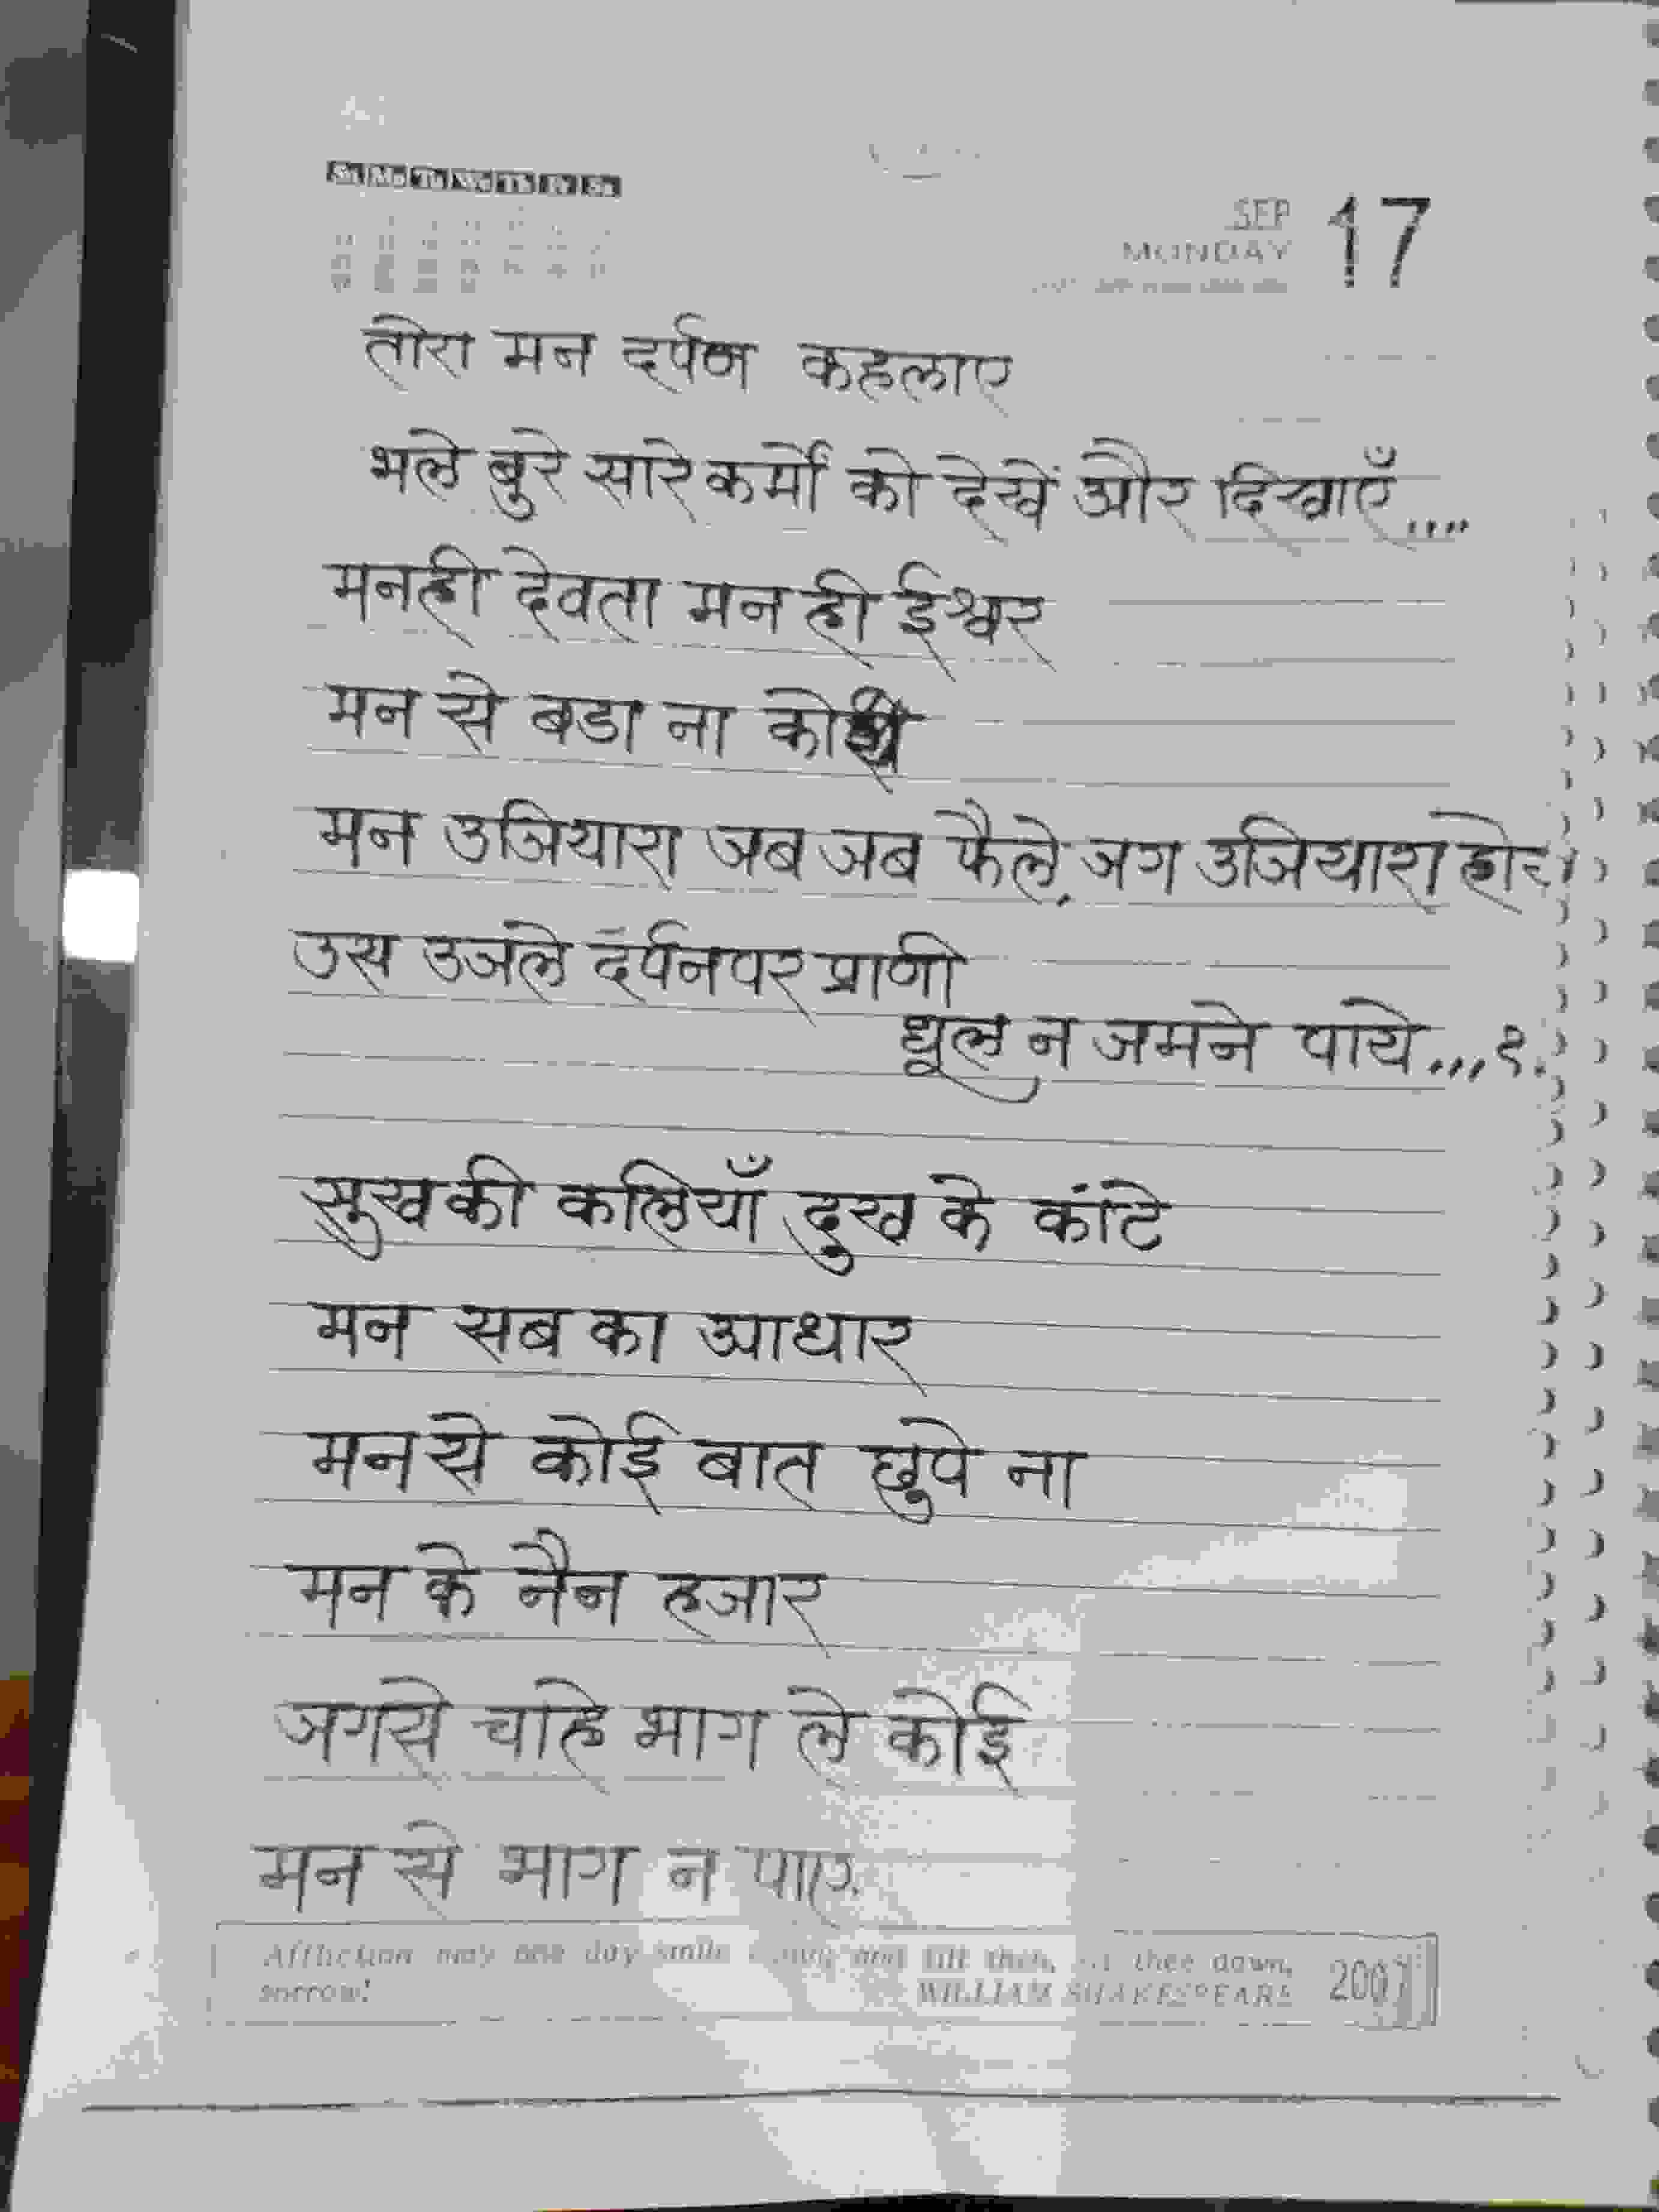 Su Mo Tu We Th Fr Sa
SEP 17
MONDAY
तोरा मन दर्पण कहलाए
भले बुरे सारे कर्मों को देखें और दिखाएँ....
मनही देवता मन ही ईश्वर
मन से बडा ना कोई
मन उजियारा जब जब फैले, जग उजियारा होए।
उस उजले दर्पनपर प्राणी
धूल न जमने पाये...१.
सुखकी कलियाँ दुख के कांटे
मन सब का आधार
मनसे कोई बात छुपे ना
मन के नैन हजार
जगसे चाहे भाग ले कोई
मन से भाग न पाए
Affliction may one day smile and till then, thee down,
sorrow!
WILLIAM SHAKESPEARE 2007